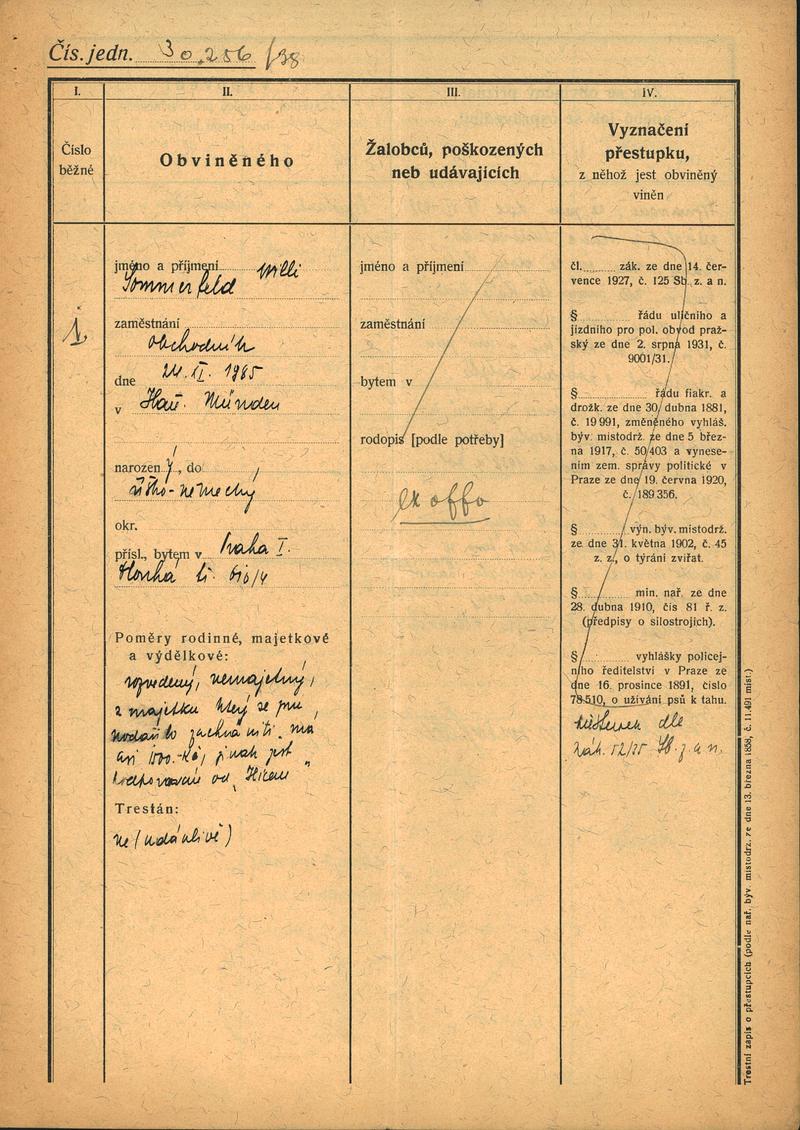 Čís. jedn. 30.256/38
I.
II.
III.
IV.
Číslo
běžné
Obviněného
Žalobců, poškozených
neb udávajících
Vyznačení
přestupku,
z něhož jest obviněný
viněn
1.
jméno a příjmení Willi
Sommerfeld
zaměstnání
obchodník
dne
v Han. Münden
narozen ý, do
říšsko-německý
okr.
přísl., bytem v Praha I.
Dlouhá tř.
Poměry rodinné, majetkové
a výdělkové:
rozvedený, nemajetný,
z majetku který se mu
podařilo zachrániti má
asi 1500.-Kč, jinak jest
podporován od
Trestán:
ne (udánlivě)
jméno a příjmení
zaměstnání
bytem v
rodopis [podle potřeby]
ex offo
čl. zák. ze dne 14. čer-
vence 1927, č. 125 Sb. z. a n.
§ řádu uličního a
jízdního pro pol. obvod praž-
ský ze dne 2. srpna 1931, č.
9001/31.
§ řádu fiakr. a
drožk. ze dne 30. dubna 1881,
č. 19 991, změněného vyhláš.
býv. místodrž. ze dne 5 břez-
na 1917, č. 50/403 a vynese-
ním zem. správy politické v
Praze ze dne 19. června 1920,
č. 189 356.
§ výn. býv. místodrž.
ze dne 31. května 1902, č. 45
z. z., o týrání zvířat.
§ min. nař. ze dne
28. dubna 1910, čís 81 ř. z.
(předpisy o silostrojích).
§ vyhlášky policej-
ního ředitelství v Praze ze
dne 16. prosince 1891, číslo
78·510, o užívání psů k tahu.
přestupek dle
zák. 52/35 Sb. z. a n.
Trestní zápis o přestupcích (podle nař. býv. místodrz. ze dne 13. března 1858, č. 11.491 míst.)